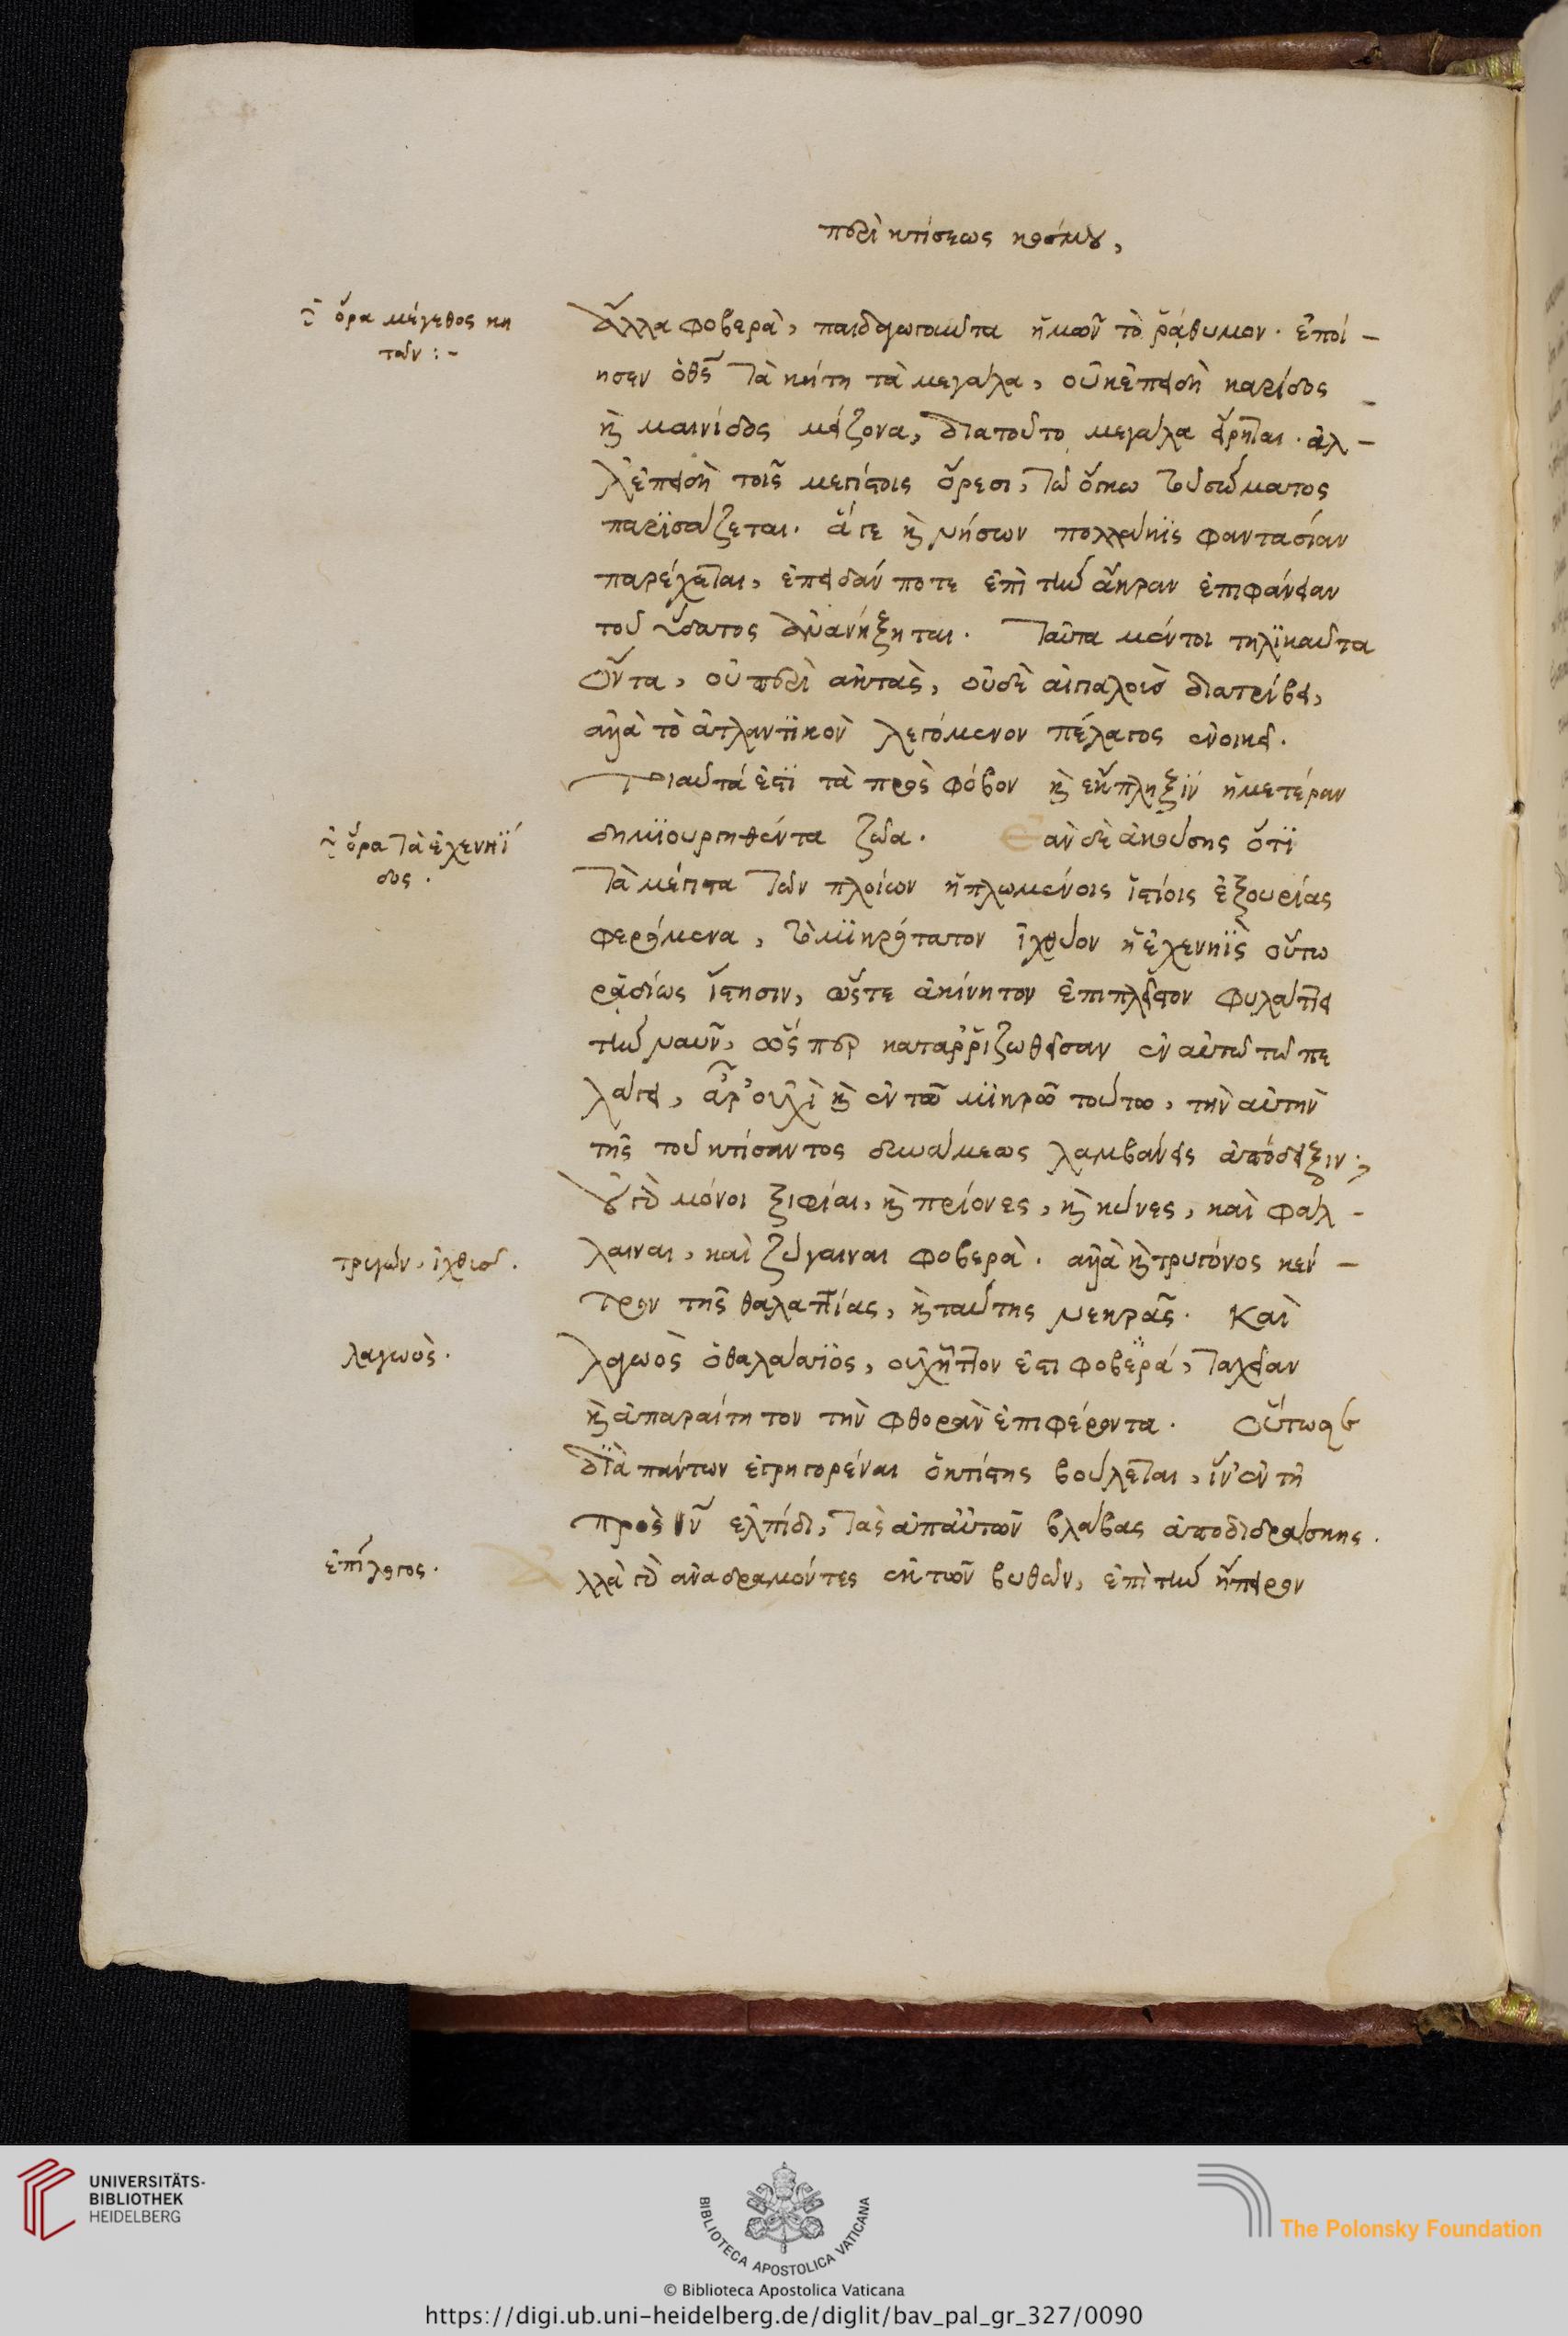 περὶ κτίσεως κόσμου,
ὅρα μέγεθος κη
τῶν :-
δ' ἄλλα φοβερὰ, παιδαγωγοῦντα ἡμῶν τὸ ῥάθυμον. ἐποί-
ησεν ὁ θς τὰ κήτη τὰ μεγάλα, οὐκ ἐπειδὴ καρίδος
καὶ μαινίδος μείζονα, διατοῦτο μεγάλα εἴρηται. ἀλ-
λ' ἐπειδὴ τοῖς μεγίστοις ὄρεσι, τῶ ὄγκω τοῦ σώματος
παρϊσάζεται. ἅ γε καὶ νήσων πολλάκϊς φαντασίαν
παρέχεται, ἐπειδάν ποτε ἐπὶ τὴν ἄκραν ἐπιφάνειαν
τοῦ ὕδατος ἀνανήξηται. Ταῦτα μέντοι τηλϊκαῦτα
ὄντα, οὐ περὶ ἀκτὰς, οὐδὲ αἰγιαλοὺς διατρίβει,
ἀλλὰ τὸ ἀτλαντϊκὸν λεγόμενον πέλαγος ἐνοικεῖ.
Τοιαῦτά ἐστϊ τὰ πρὸς φόβον καὶ ἔκπληξϊν ἡμετέραν
ὅρα τὰ ἐχενηΐ
δος.
δημϊουργηθέντα ζῶα. Ἐὰν δὲ ἀκούσης ὅτϊ
τὰ μέγιστα τῶν πλοίων ἡπλωμένοις ἱστίοις ἐξουρίας
φερόμενα, τὸ μϊκρότατον ἰχθύον ἡ ἐχενηῒς οὕτω
ῥᾳδίως ἵστησιν, ὥστε ἀκίνητον ἐπιπλεῖστον φυλάττει
τὴν ναῦν, ὥσπερ καταῤῥιζωθεῖσαν ἐν αὐτῶ τῶ πε
λάγει, ἆρ' οὐχὶ καὶ ἐν τῶ μϊκρῶ τούτω, τὴν αὐτὴν
τῆς τοῦ κτίσαντος δυνάμεως λαμβάνεις ἀπόδειξιν;
Οὐ γὰρ μόνοι ξιφίαι, καὶ πρίονες, καὶ κύνες, καὶ φάλ-
τρυγών, ἰχθύς.
λαιναι, καὶ ζύγαιναι φοβερὰ. ἀλλὰ καὶ τρυγόνος κέν-
τρον τῆς θαλαττίας, καὶ ταύτης νεκρᾶς. Καὶ
λαγωὸς.
λαγωὸς ὁ θαλάττϊος, οὐχ ἧττον ἐστι φοβερά, ταχεῖαν
καὶ ἀπαραίτητον τὴν φθορὰν ἐπιφέροντα. Οὕτω σε
δϊὰ πάντων ἐγρηγορέναι ὁ κτίστης βούλεται, ἵν' ἐν τῆ
πρὸς θν ἐλπίδι, τὰς ἀπ' αὐτῶν βλάβας ἀποδιδράσκης.
ἐπίλογος.
Ἀλλὰ γὰρ ἀναδραμόντες ἐκ τῶν βυθῶν, ἐπὶ τὴν ἤπειρον
UNIVERSITÄTS-
BIBLIOTHEK
HEIDELBERG
BIBLIOTECA APOSTOLICA VATICANA
The Polonsky Foundation
© Biblioteca Apostolica Vaticana
https://digi.ub.uni-heidelberg.de/diglit/bav_pal_gr_327/0090